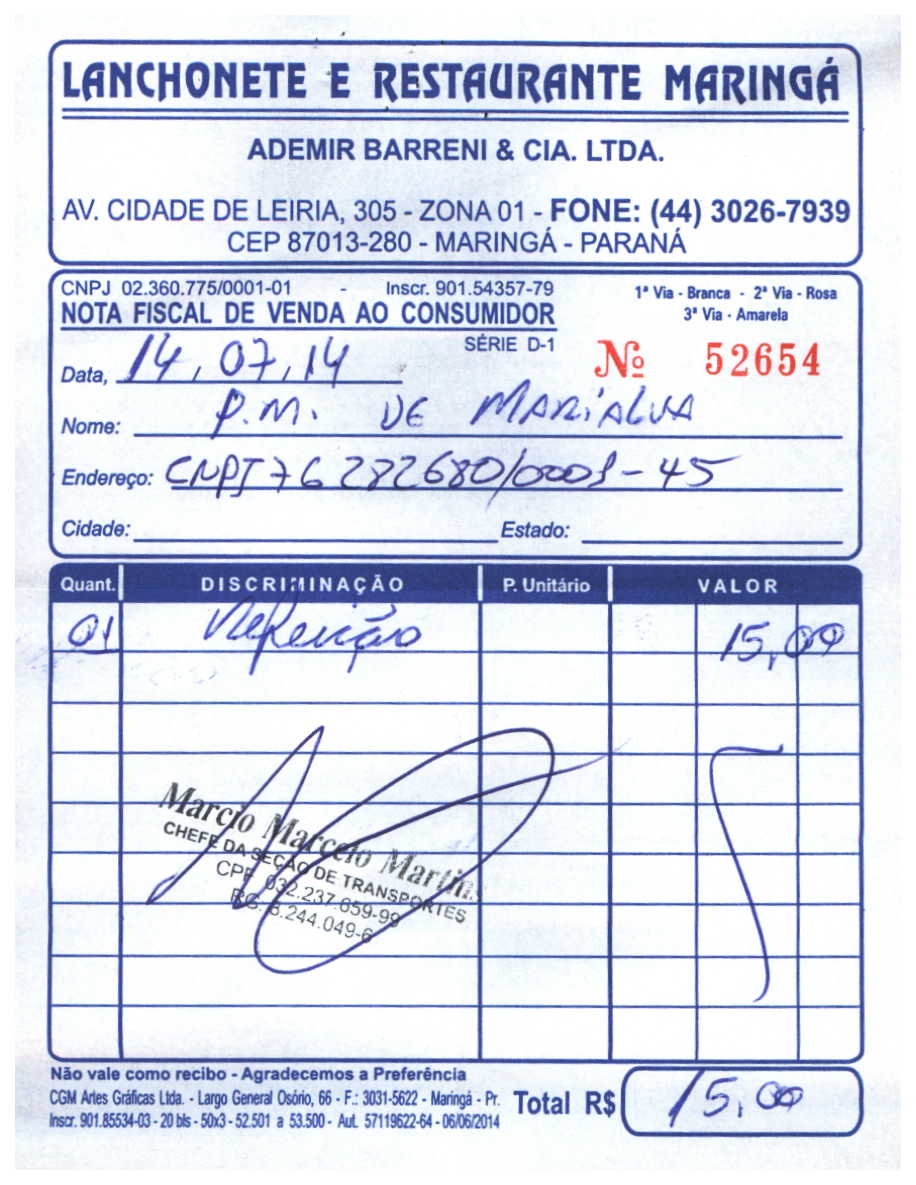 LANCHONETE E RESTAURANTE MARINGÁ
ADEMIR BARRENI & CIA. LTDA.
AV. CIDADE DE LEIRIA, 305 - ZONA 01 - FONE: (44) 3026-7939
CEP 87013-280 - MARINGÁ - PARANÁ
CNPJ 02.360.775/0001-01 Inscr. 901.54357-79
1ª Via - Branca - 2ª Via - Rosa
3ª Via - Amarela
NOTA FISCAL DE VENDA AO CONSUMIDOR
SÉRIE D-1
Nº 52654
Data, 14, 07, 14
Nome: P.M. DE MARIALVA
Endereço: CNPJ 76282680/0001-45
Cidade: Estado:
Quant. DISCRIMINAÇÃO P. Unitário VALOR
01 Refeição 15,00
Marcio Marcelo Martins
CHEFE DA SECAO DE TRANSPORTES
CPF 032.237.659-99
RG. 8.244.049-6
Não vale como recibo - Agradecemos a Preferência
CGM Artes Gráficas Ltda. - Largo General Osório, 66 - F.: 3031-5622 - Maringá - Pr.
Inscr. 901.85534-03 - 20 bls - 50x3 - 52.501 a 53.500 - Aut. 57119622-64 - 06/06/2014
Total R$ 15,00